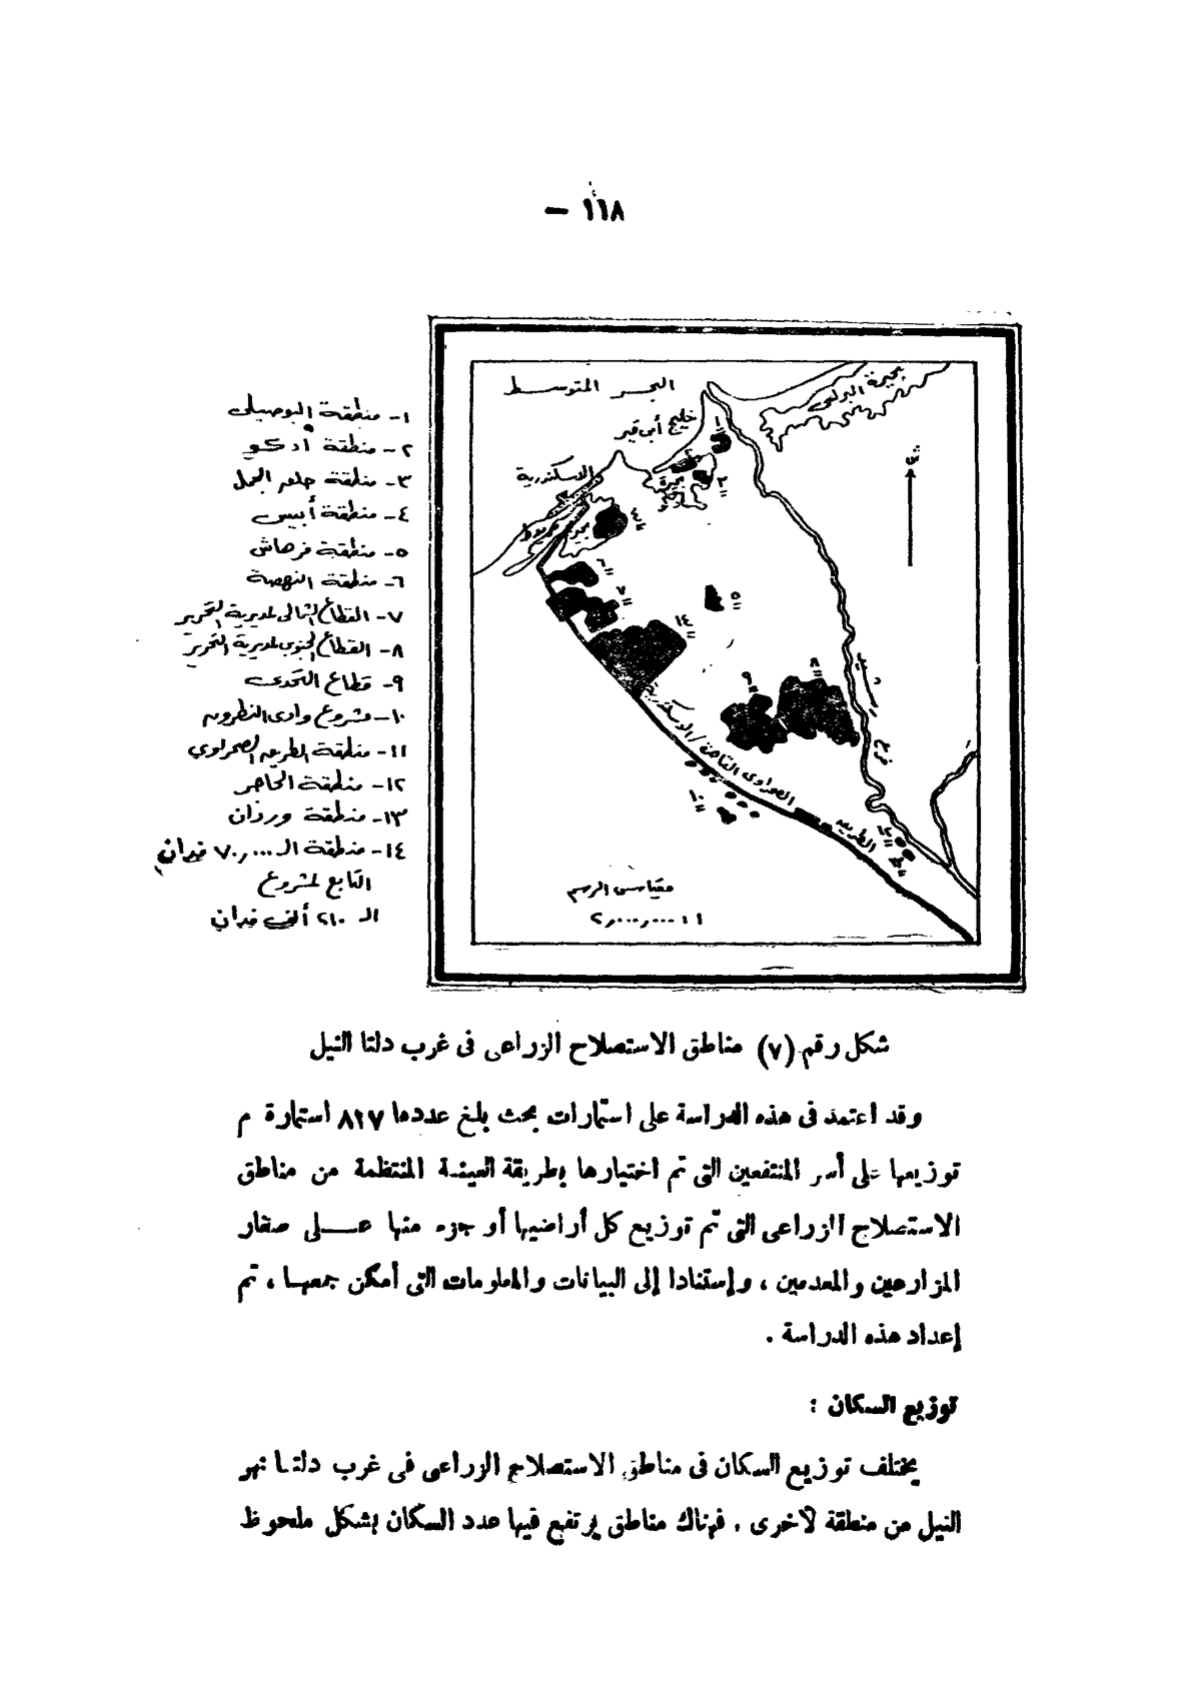 — ١١٨
١- منطقة البوصيلى
٢- منطقة أدكو
٣- منطقة حلق الجمل
٤- منطقة أبيس
٥- منطقة فرهاش
٦- منطقة النهضة
٧- القطاع الشمالى لمديرية التحرير
٨- القطاع الجنوبى لمديرية التحرير
٩- قطاع التحدى
١٠- مشروع وادى النطرون
١١- منطقة الطريق الصحراوى
١٢- منطقة الحاجر
١٣- منطقة وردان
١٤- منطقة الـ ٧٠٫٠٠٠ فدان
التابع لمشروع
الـ ٢١٠ ألف فدان
البحر المتوسط
بحيرة البرلس
خليج أبى قير
الاسكندرية
ش
١
٢
٣
٤
٥
٦
٧
٨
٩
١٠
١٤
فرع رشيد
الطريق الصحراوى القاهرة / الاسكندرية
مقياس الرسم
١ : ٢٫٠٠٠٫٠٠٠
شكل رقم (٧) مناطق الاستصلاح الزراعى فى غرب دلتا النيل
وقد اعتمد فى هذه الدراسة على استمارات بحث بلغ عددها ٨٢٧ استمارة م
توزيعها على أسر المنتفعين التى تم اختيارها بطريقة العينة المنتظمة من مناطق
الاستصلاح الزراعى التى تم توزيع كل أراضيها أو جزء منها عــلى صغار
المزارعين والمعدمين ، وإستنادا إلى البيانات والمعلومات التى أمكن جمعهـا ، تم
إعداد هذه الدراسة .
توزيع السكان :
يختلف توزيع السكان فى مناطق الاستصلاح الزراعى فى غرب دلتـا نهر
النيل من منطقة لأخرى . فهناك مناطق يرتفع فيها عدد السكان بشكل ملحوظ